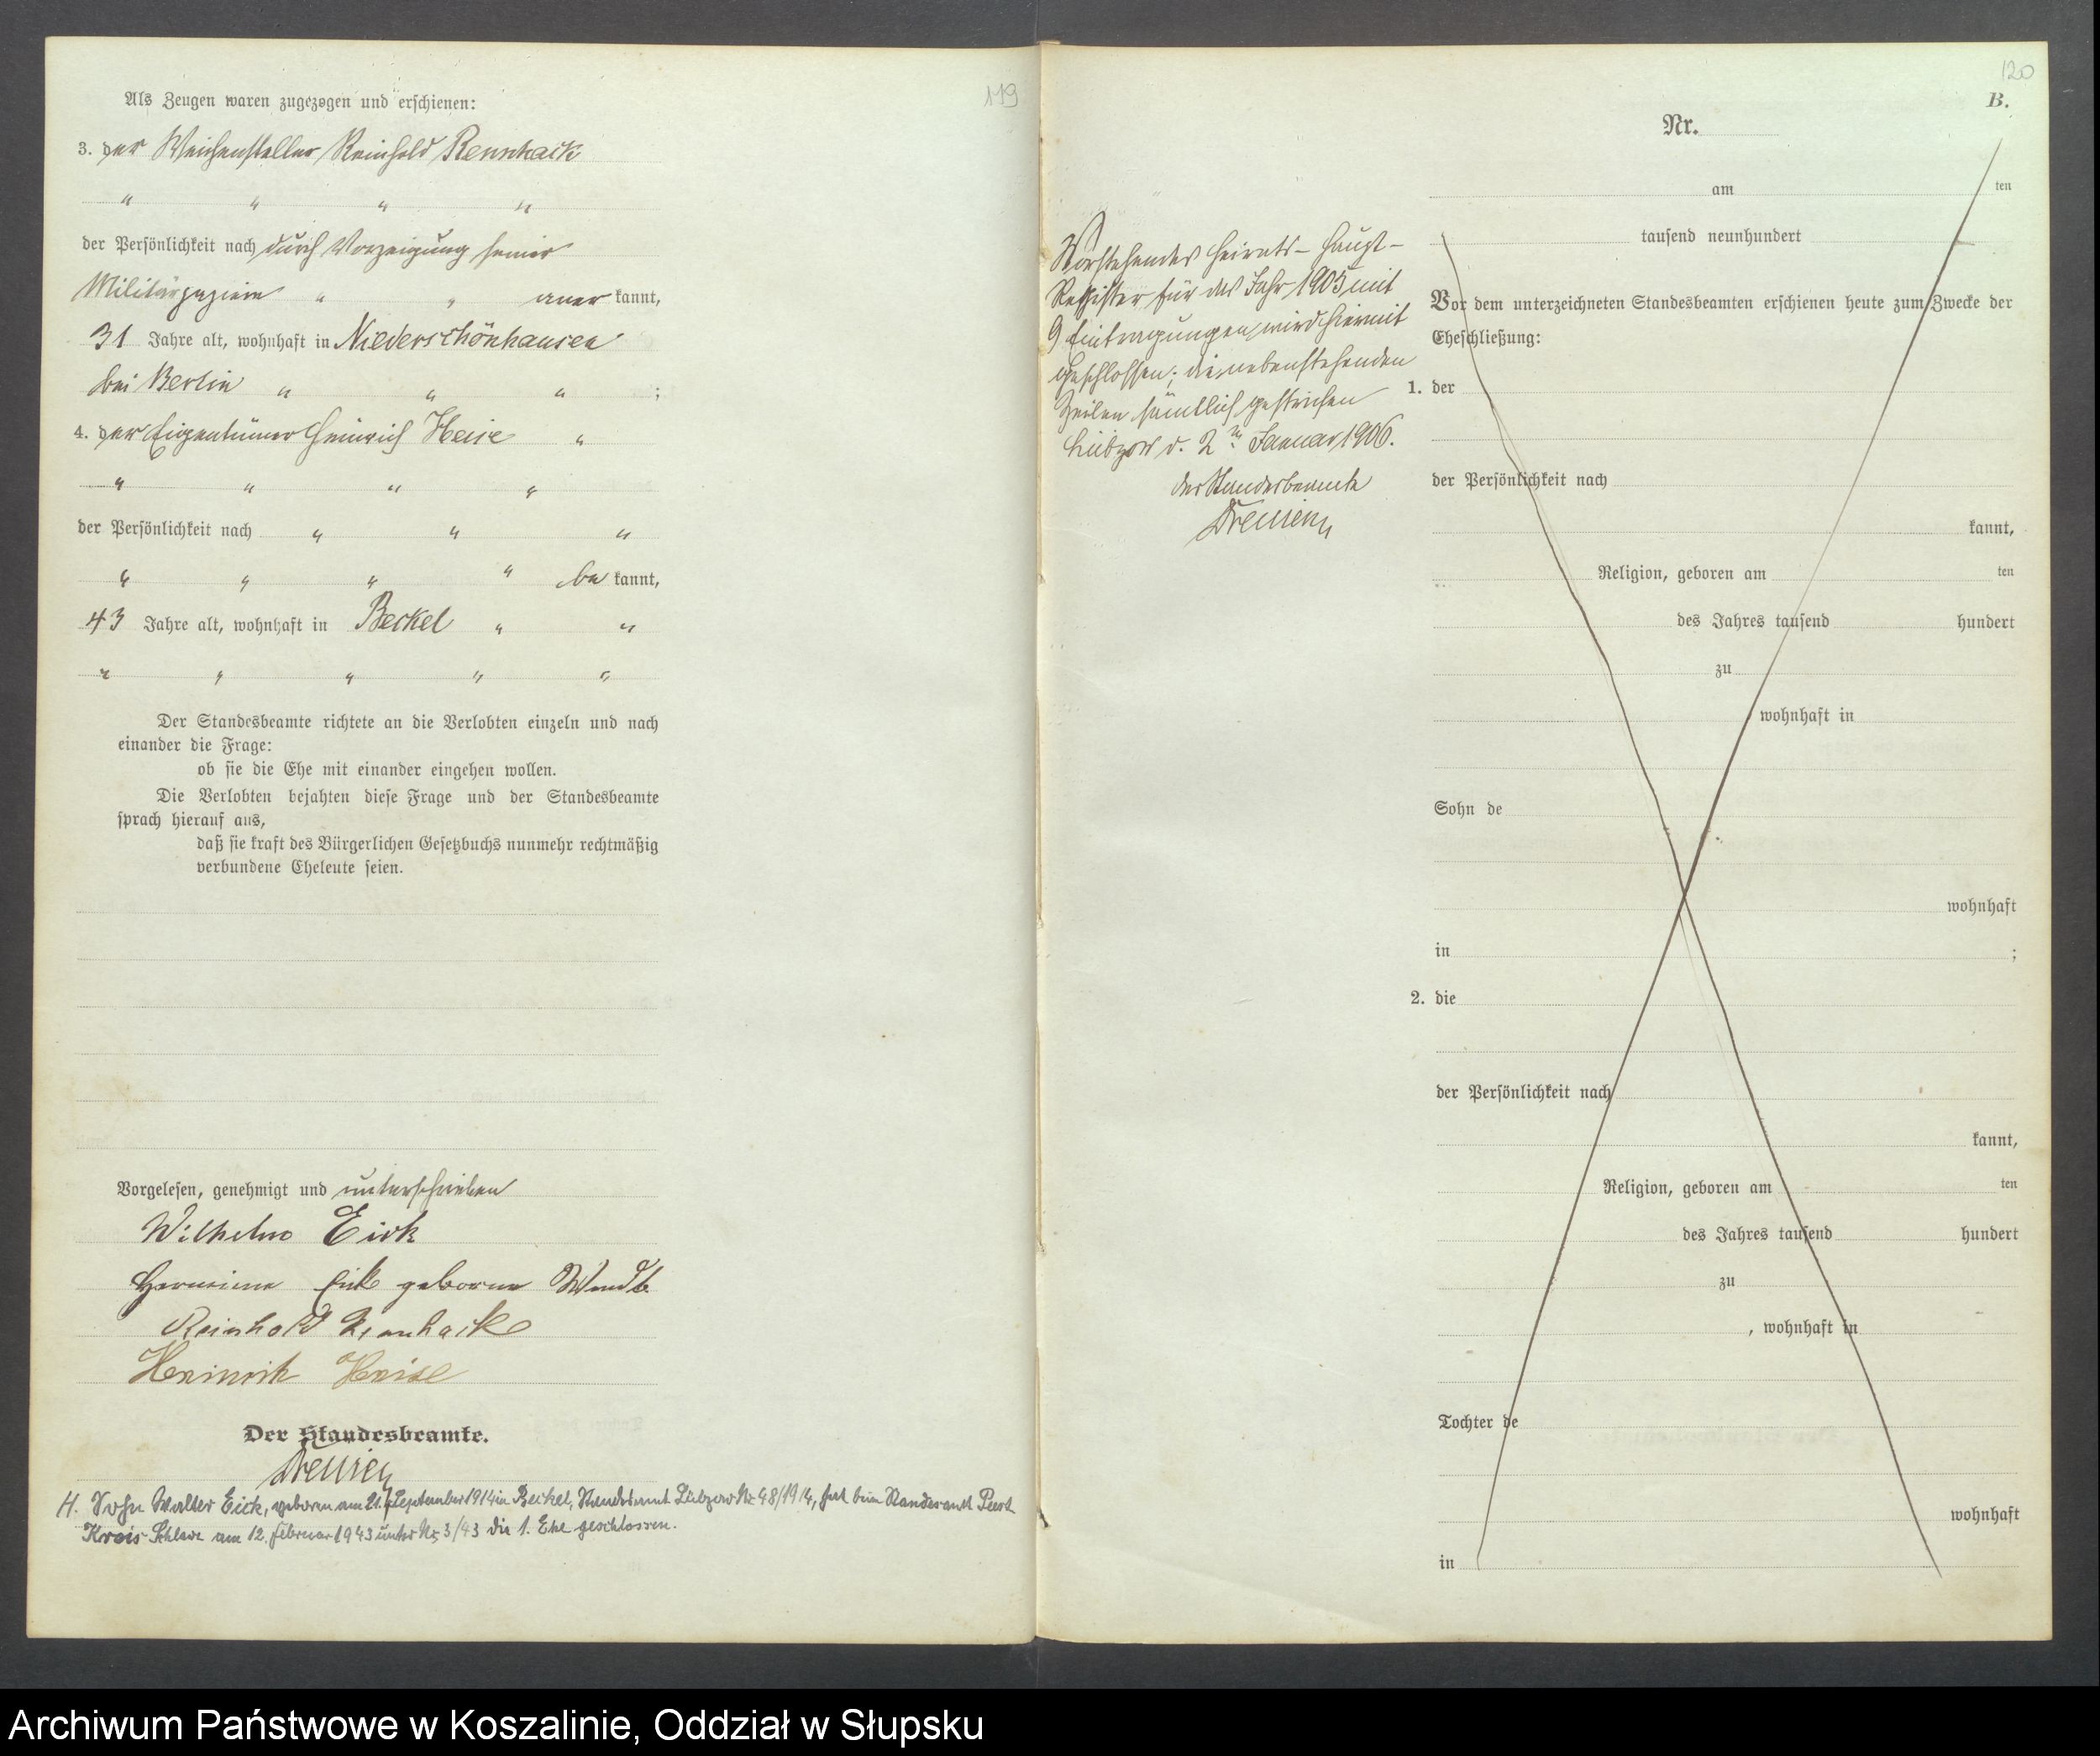 119
Als Zeugen waren zugezogen und erschienen:
3. der Weichensteller Reinhold Rennhack
" " " "
der Persönlichkeit nach durch Vorzeigung seiner
Militärpapiere " " aner kannt,
31 Jahre alt, wohnhaft in Niederschönhausen
bei Berlin " " " ;
4. der Eigentümer Heinrich Heise "
" " " "
der Persönlichkeit nach " " "
" " " " be kannt,
43 Jahre alt, wohnhaft in Beckel " "
" " " " "
Der Standesbeamte richtete an die Verlobten einzeln und nach
einander die Frage:
ob sie die Ehe mit einander eingehen wollen.
Die Verlobten bejahten diese Frage und der Standesbeamte
sprach hierauf aus,
daß sie kraft des Bürgerlichen Gesetzbuchs nunmehr rechtmäßig
verbundene Eheleute seien.
Vorgelesen, genehmigt und unterschrieben
Wilhelm Eick
Hermine Eick geborne Wendt
Reinhold Rennhack
Heinrich Heise
Der Standesbeamte.
H. Sohn Walter Eick, geboren am 21. September 1914 in Beckel, Standesamt Lübzow Nr. 48/1914, hat beim Standesamt Peest
Kreis Schlawe am 12. Februar 1943 unter Nr. 3/43 die 1. Ehe geschlossen.
120
B.
Vorstehendes Heirats-Haupt-
Register für das Jahr 1905 mit
9 Eintragungen wird hiermit
geschlossen; die nebenstehenden
Zeilen sämtlich gestrichen
Lübzow d. 2ten Januar 1906.
der Standesbeamte
Nr.
am ten
tausend neunhundert
Vor dem unterzeichneten Standesbeamten erschienen heute zum Zwecke der
Eheschließung:
1. der
der Persönlichkeit nach
kannt,
Religion, geboren am ten
des Jahres tausend hundert
zu
, wohnhaft in
Sohn de
wohnhaft
in ;
2. die
der Persönlichkeit nach
kannt,
Religion, geboren am ten
des Jahres tausend hundert
zu
, wohnhaft in
Tochter de
wohnhaft
in
Archiwum Państwowe w Koszalinie, Oddział w Słupsku